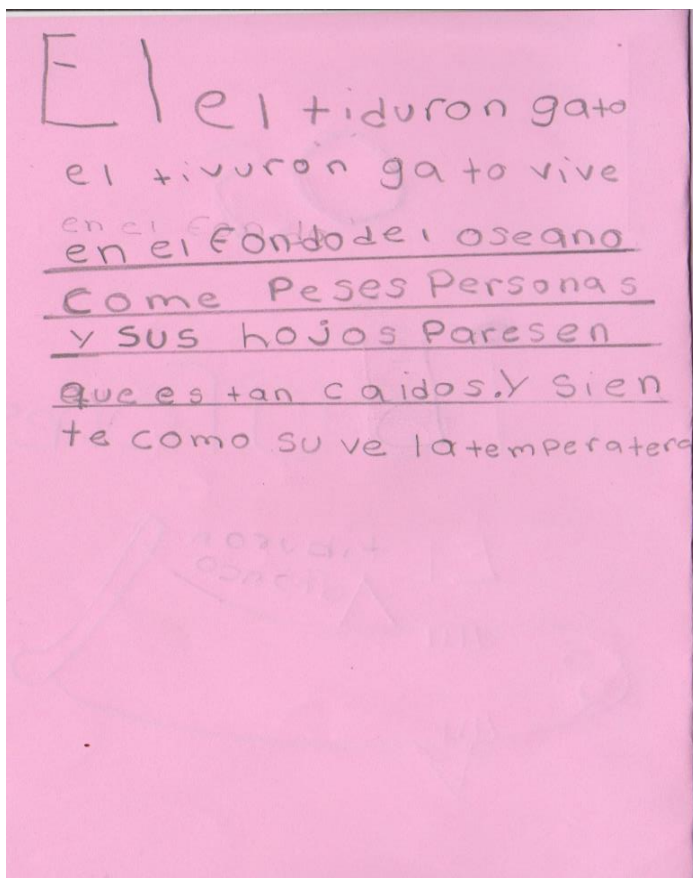 El el tiduron gato
el tivuron gato vive
en el fondo del oseano
come peses personas
y sus hojos paresen
que es tan caidos. Y sien
te como su ve latemperatera